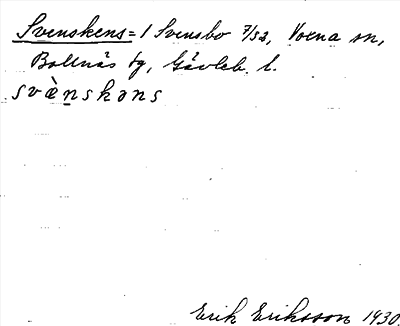 Svenskens = 1 Svensbo 7/32, Voxna sn,
Bollnäs tg, Gävleb. l.
svæ̀nskəns
Erik Eriksson 1930.